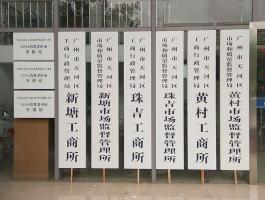 广州市天河区
工商行政管理局
新塘工商所
广州市天河区
市场和质量监督管理局
新塘市场监督管理所
广州市天河区
工商行政管理局
珠吉工商所
广州市天河区
市场和质量监督管理局
珠吉市场监督管理所
广州市天河区
工商行政管理局
黄村工商所
广州市天河区
市场和质量监督管理局
黄村市场监督管理所